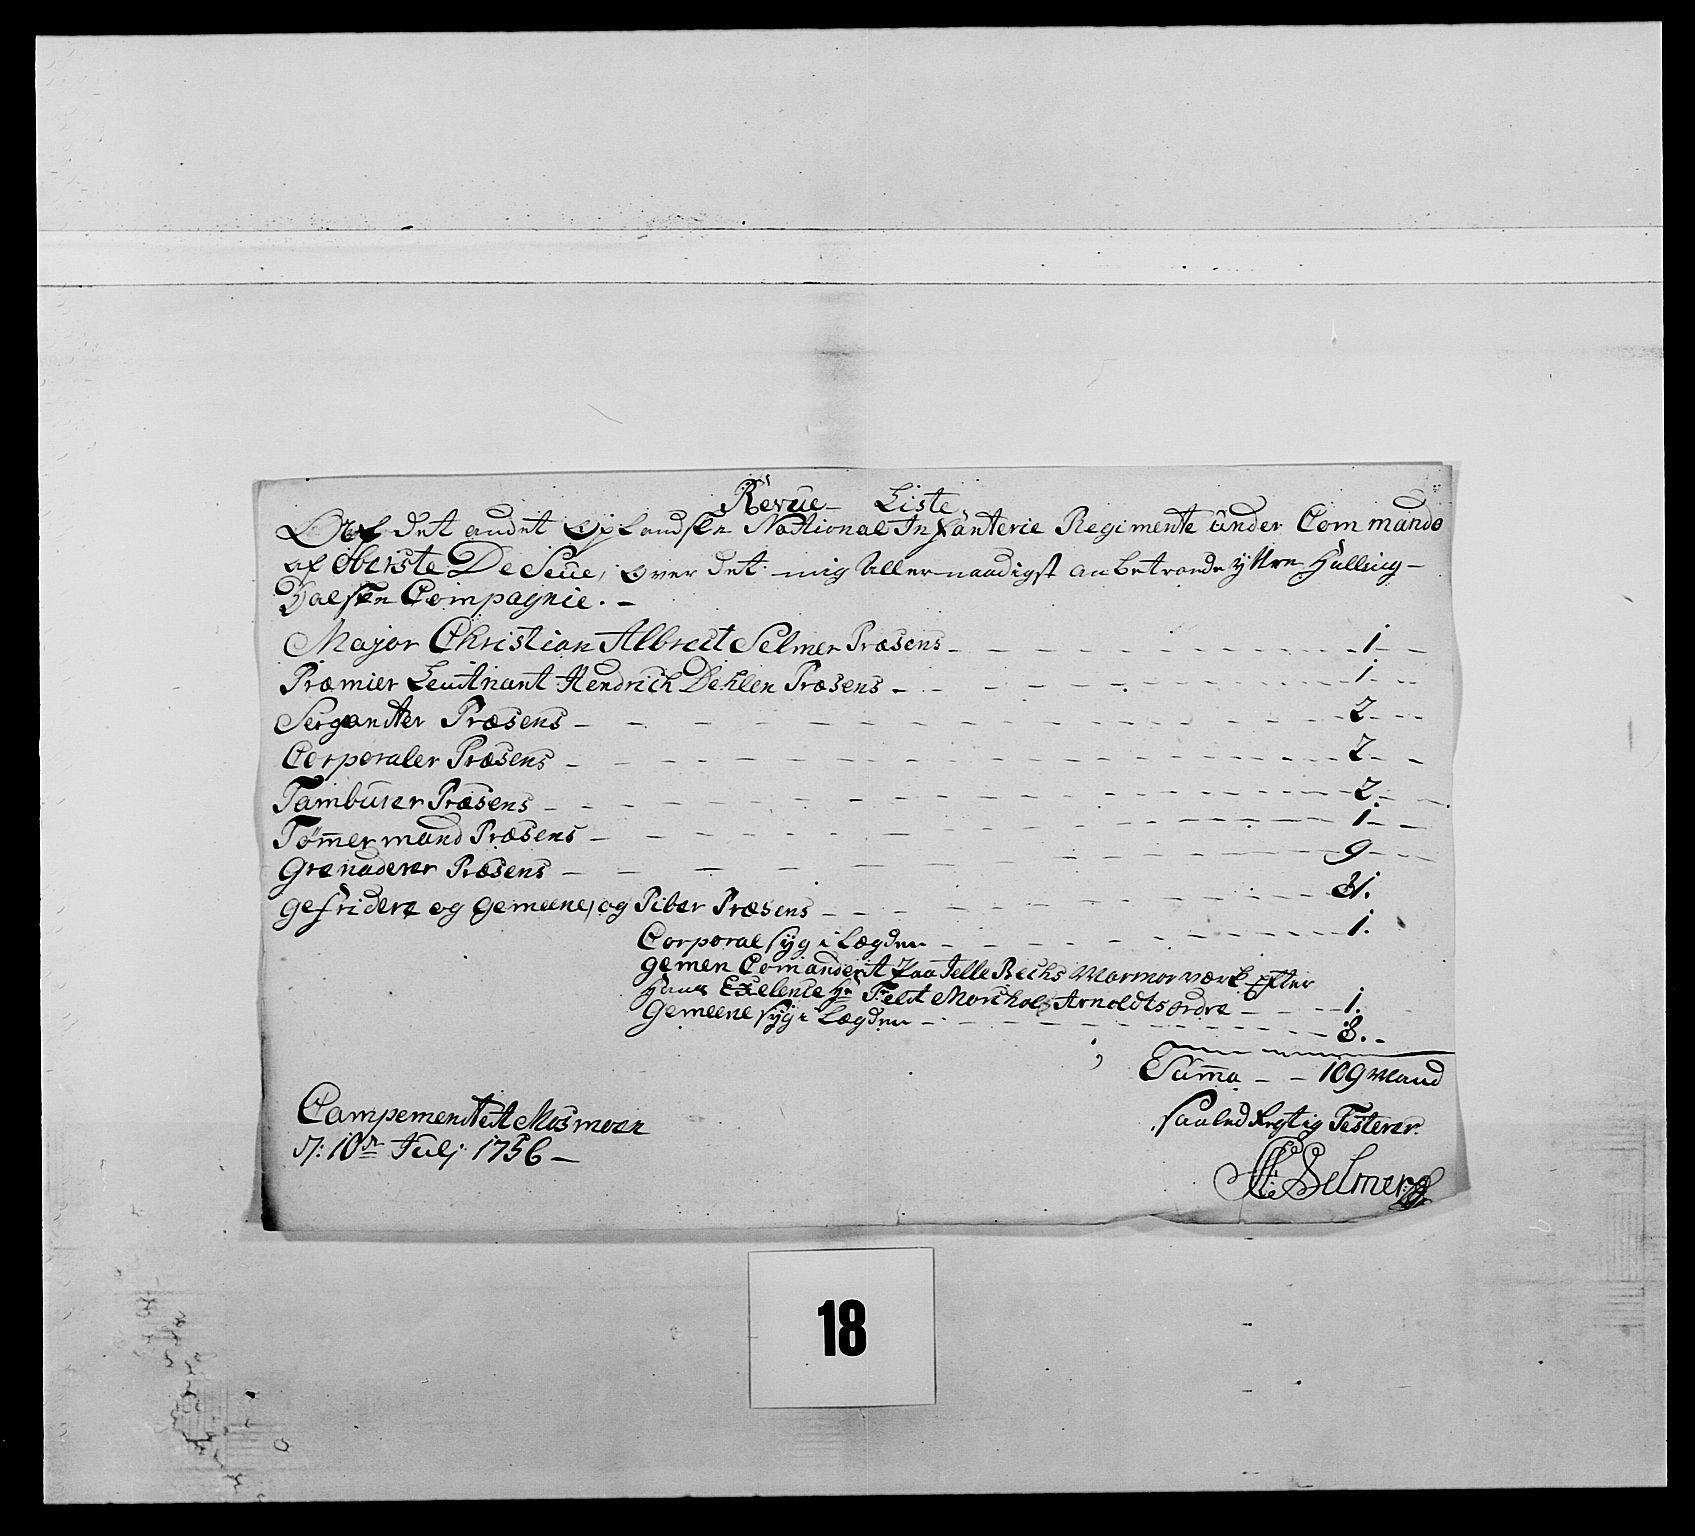 Revue Liste
Af det andet Oplandske National Infanterie Regimente under Commando
af Oberste De Seüe, over det mig allernaadigst anbetroede yttre Halling-
Dalske Compagnie. -
Major Christian Albrect Selmer Præsens - 1 -
Præmier Leutnant Hendrich Dehlen Præsens - 1 -
Sergandter Præsens - 2 -
Corporaler Præsens - 2 -
Tambuser Præsens - 2 -
Tømermand Præsens - 1 -
Granaderer Præsens - 9 -
Gefridere og gemeene, og Piber Præsens - 81.
Corporal syg i Lægden - 1.
gemen Comandert paa Jelle Bechs Marmorværk efter
Hans Exelence Hr Feldt Marschals Arnoldts ordre - 1.
Gemeene syg i Lægden - 8. -
Summa - - 109 Mand
Campementet Mosmoen
d: 10de Julj 1756 -
saaled Rigtig Testerer.
CA Selmer
18